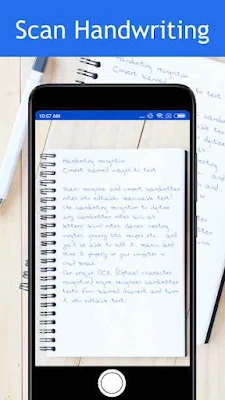 Scan Handwriting
Handwriting recognition
Convert scanned images to text
10:57 AM
Handwriting recognition
Convert scanned images to text
Scan, recognize and convert handwritten
notes into editable, searchable text!
Use handwriting recognition to digitize
any handwritten notes such as
letters, blind notes, diaries, meeting
minutes, grocery lists, recipes etc. and
you'll be able to edit it, search and
store it properly on your computer or
cloud
Our unique OCR (Optical character
recognition) engine recognizes handwritten
texts from scanned document and turns
it into editable text.